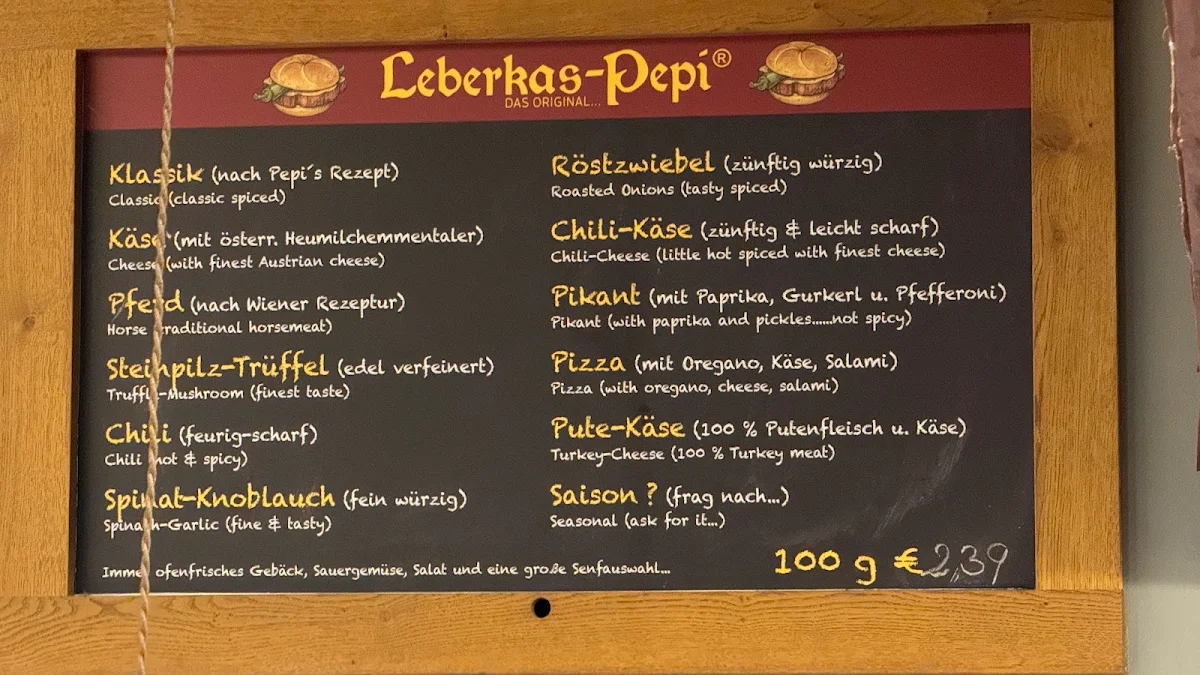 Leberkas-Pepi®
DAS ORIGINAL...
Klassik (nach Pepi´s Rezept)
Classic (classic spiced)
Käse (mit österr. Heumilchemmentaler)
Cheese (with finest Austrian cheese)
Pferd (nach Wiener Rezeptur)
Horse (traditional horsemeat)
Steinpilz-Trüffel (edel verfeinert)
Truffle-Mushroom (finest taste)
Chili (feurig-scharf)
Chili (hot & spicy)
Spinat-Knoblauch (fein würzig)
Spinach-Garlic (fine & tasty)
Röstzwiebel (zünftig würzig)
Roasted Onions (tasty spiced)
Chili-Käse (zünftig & leicht scharf)
Chili-Cheese (little hot spiced with finest cheese)
Pikant (mit Paprika, Gurkerl u. Pfefferoni)
Pikant (with paprika and pickles......not spicy)
Pizza (mit Oregano, Käse, Salami)
Pizza (with oregano, cheese, salami)
Pute-Käse (100 % Putenfleisch u. Käse)
Turkey-Cheese (100 % Turkey meat)
Saison ? (frag nach...)
Seasonal (ask for it...)
Immer ofenfrisches Gebäck, Sauergemüse, Salat und eine große Senfauswahl...
100 g € 2,39